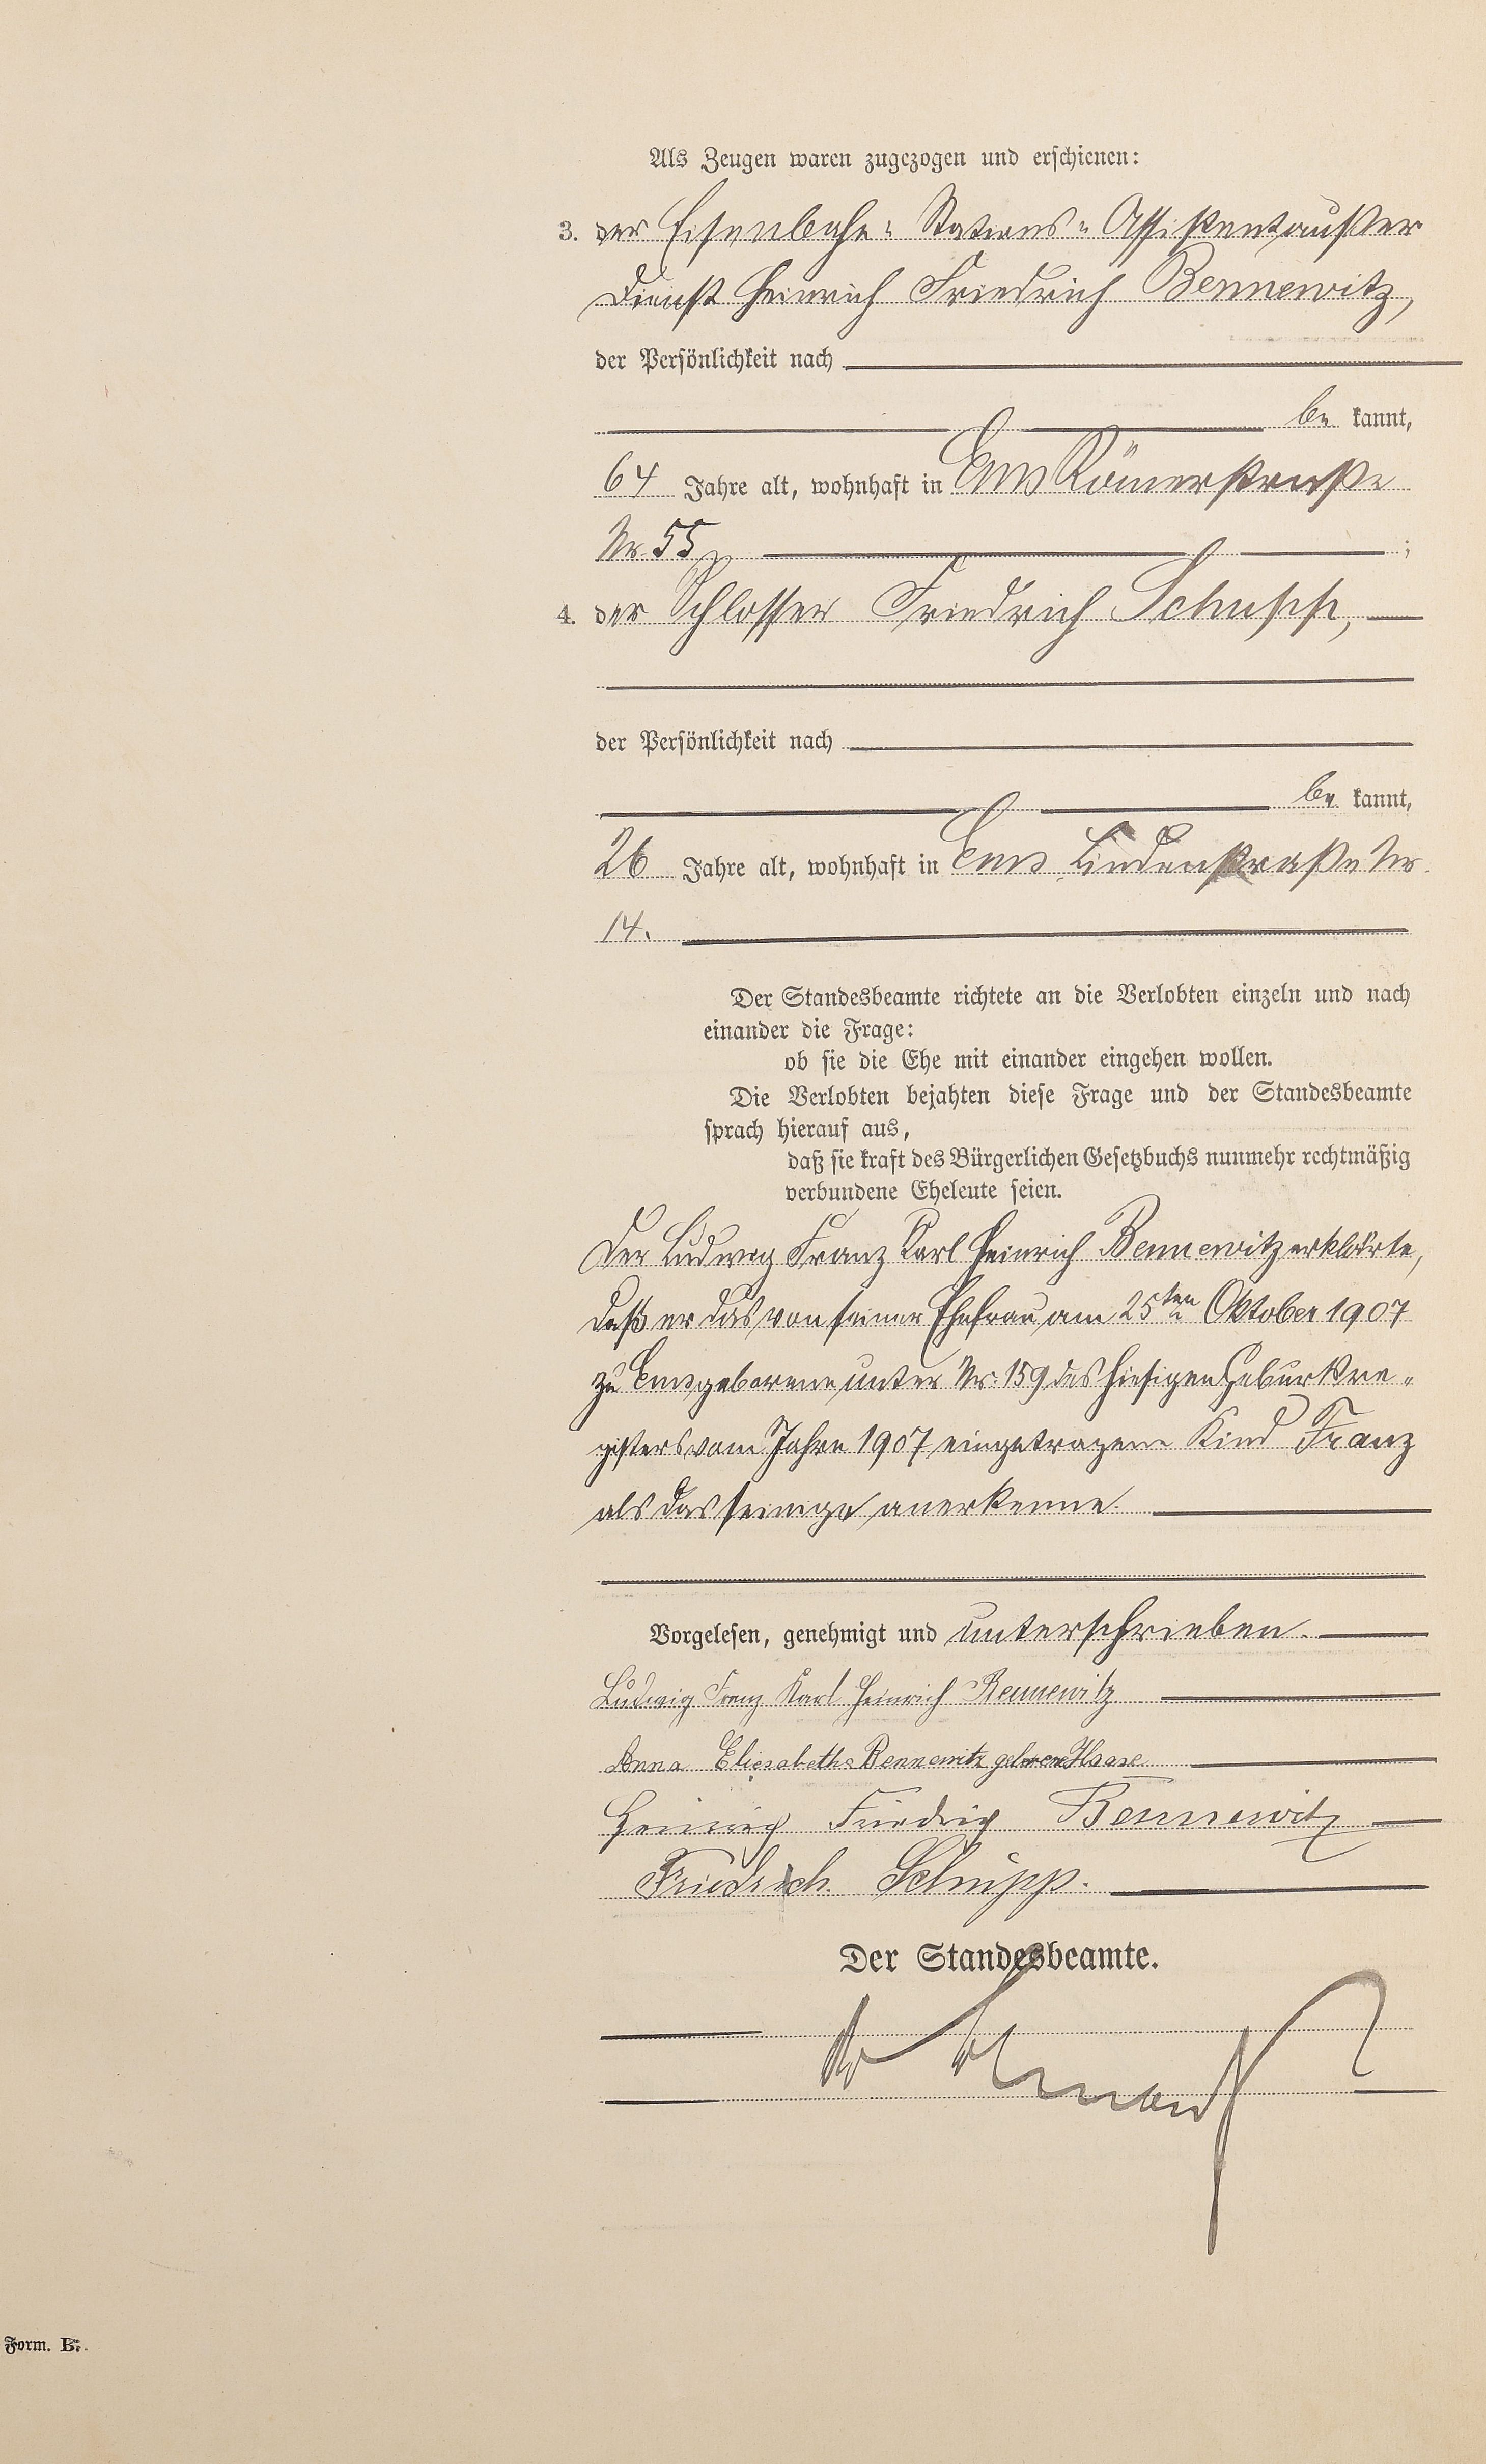 Als Zeugen waren zugezogen und erschienen:
3. der Eisenbahn= Stations= Assistent außer
Dienst Heinrich Friedrich Bennewitz,
der Persönlichkeit nach
be kannt,
64 Jahre alt, wohnhaft in Ems Römerstraße
Nr. 55,
;
4. der Schlosser Friedrich Schupp,
der Persönlichkeit nach
be kannt,
26 Jahre alt, wohnhaft in Ems Lindenstraße Nr.
14.
Der Standesbeamte richtete an die Verlobten einzeln und nach
einander die Frage:
ob sie die Ehe mit einander eingehen wollen.
Die Verlobten bejahten diese Frage und der Standesbeamte
sprach hierauf aus,
daß sie kraft des Bürgerlichen Gesetzbuchs nunmehr rechtmäßig
verbundene Eheleute seien.
Der Ludwig Franz Karl Heinrich Bennewitz erklärte,
daß er das von seiner Ehefrau am 25ten Oktober 1907
zu Ems geborene unter Nr. 159 des hiesigen Geburtsre=
gisters vom Jahre 1907 eingetragene Kind Franz
als das seinige anerkenne.
Vorgelesen, genehmigt und unterschrieben.
Ludwig Franz Karl Heinrich Bennewitz
Anna Eliesabetha Bennewitz geborene Haase
Heinrich Friedrich Bennewitz
Friedrich Schupp.
Der Standesbeamte.
Form. B.